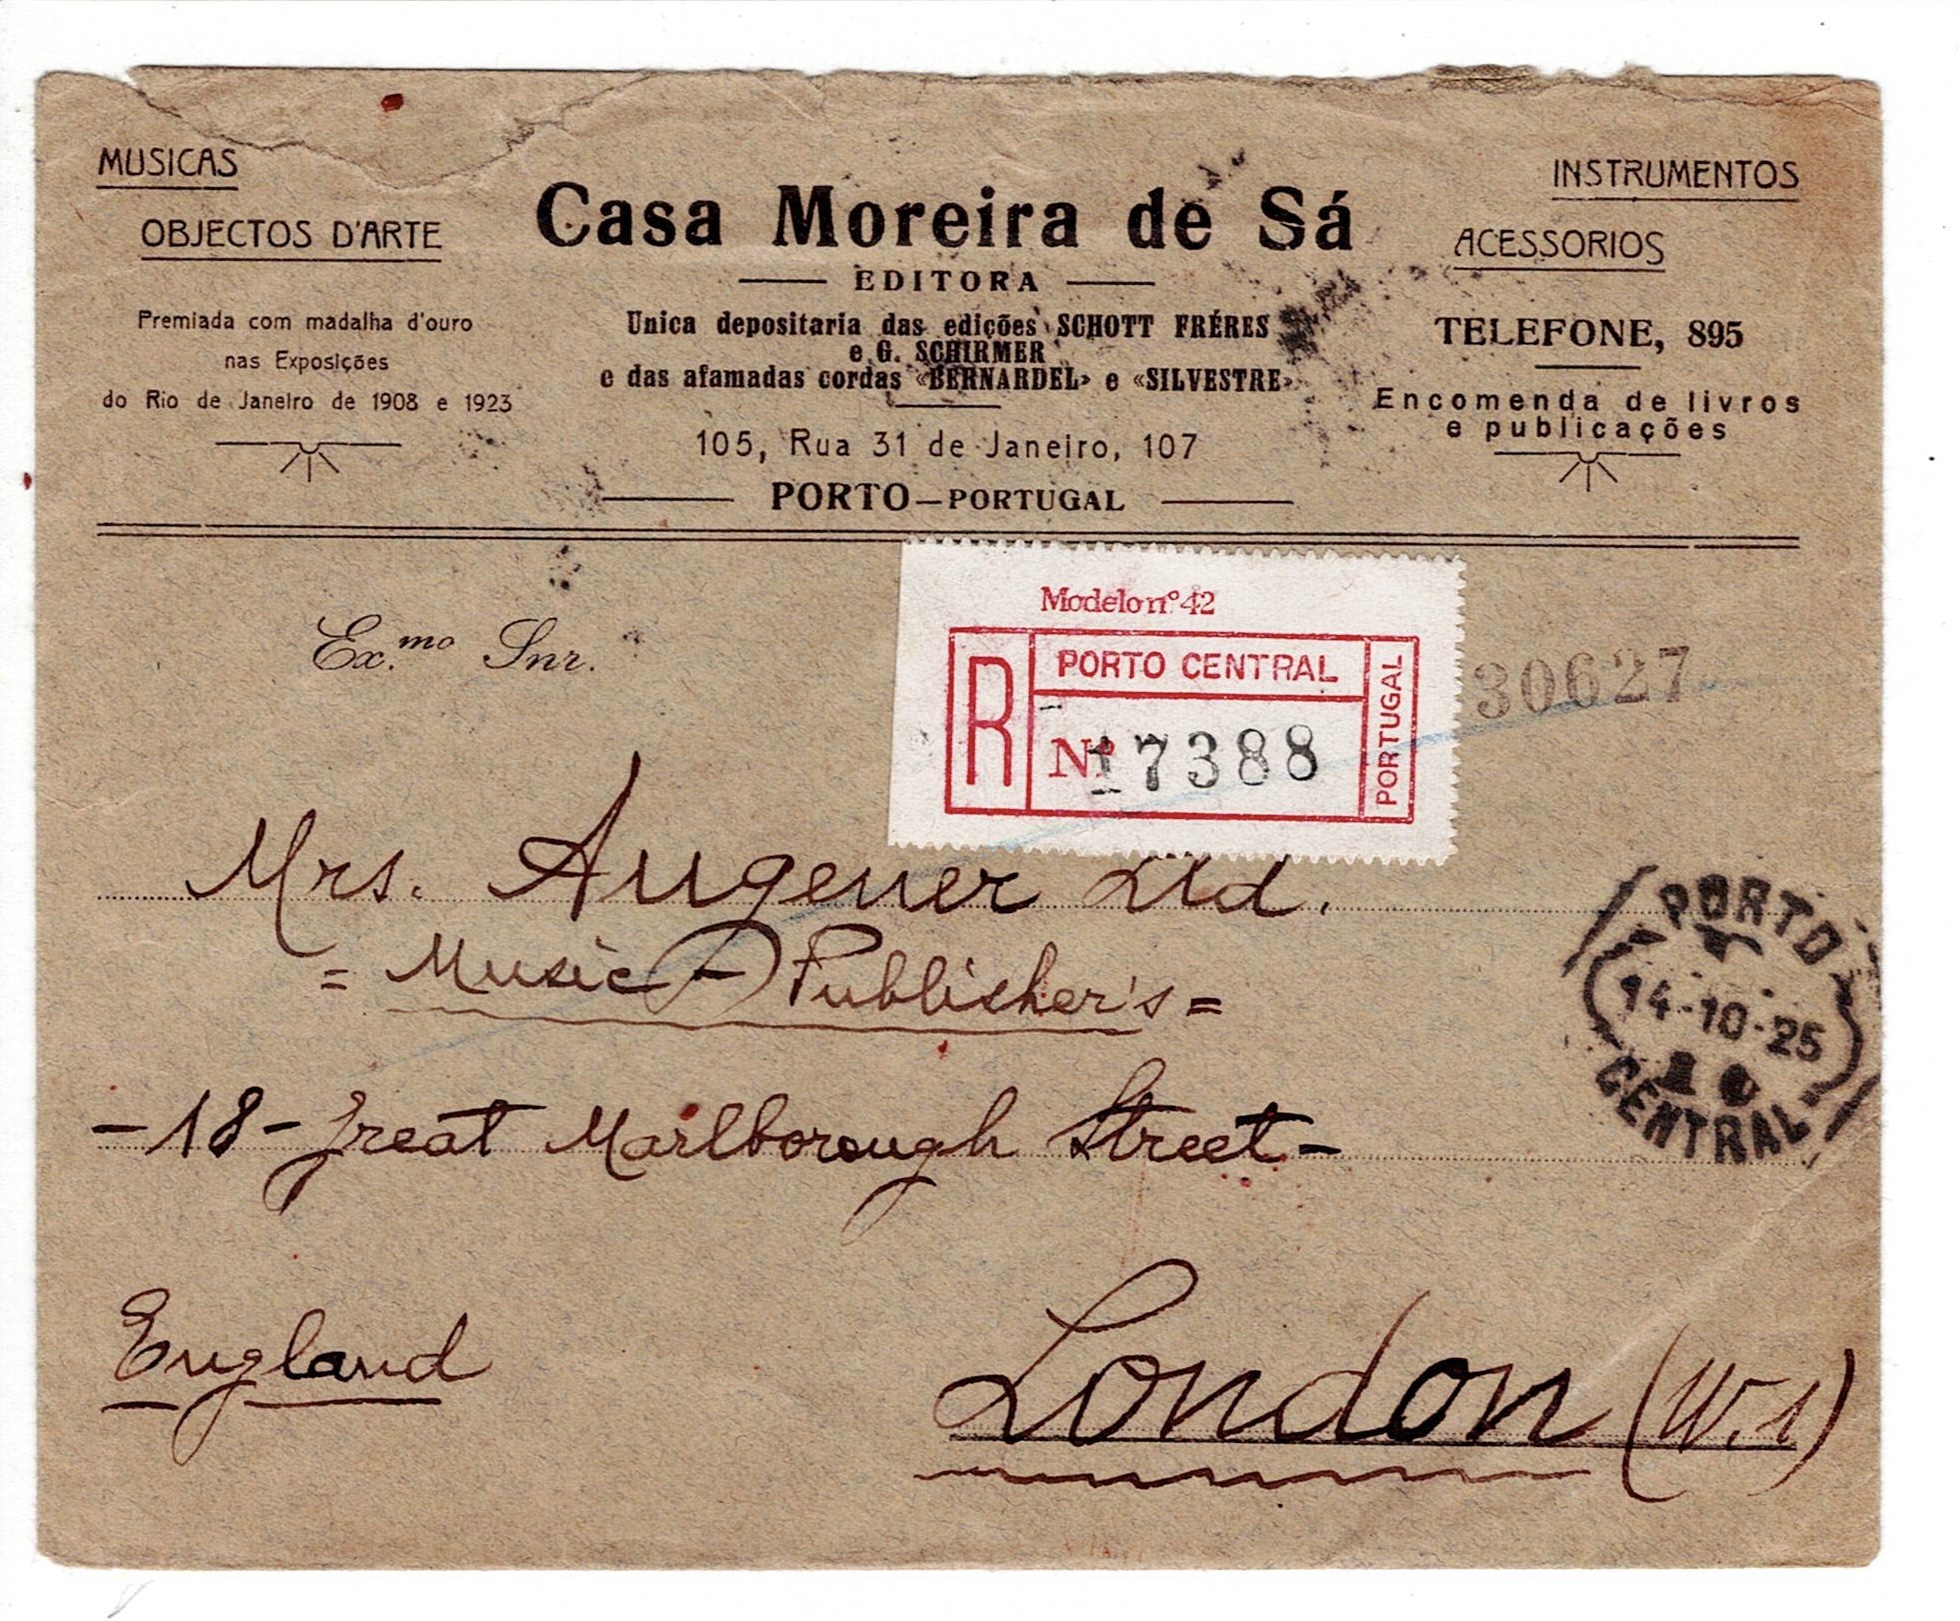 MUSICAS
OBJECTOS D'ARTE
Premiada com madalha d'ouro
nas Exposições
do Rio de Janeiro de 1908 e 1923
Casa Moreira de Sá
EDITORA
Unica depositaria das edições SCHOTT FRÉRES
e G. SCHIRMER
e das afamadas cordas «BERNARDEL» e «SILVESTRE»
105, Rua 31 de Janeiro, 107
PORTO—PORTUGAL
INSTRUMENTOS
ACESSORIOS
TELEFONE, 895
Encomenda de livros
e publicações
Ex.mo Snr.
Modelo nº 42
R
PORTO CENTRAL
Nº 17388
PORTUGAL
30627
Mrs. Augener Ltd.
= Music Publisher's =
PORTO
14-10-25
CENTRAL
-18- Great Marlborough Street-
England
London (W.1)